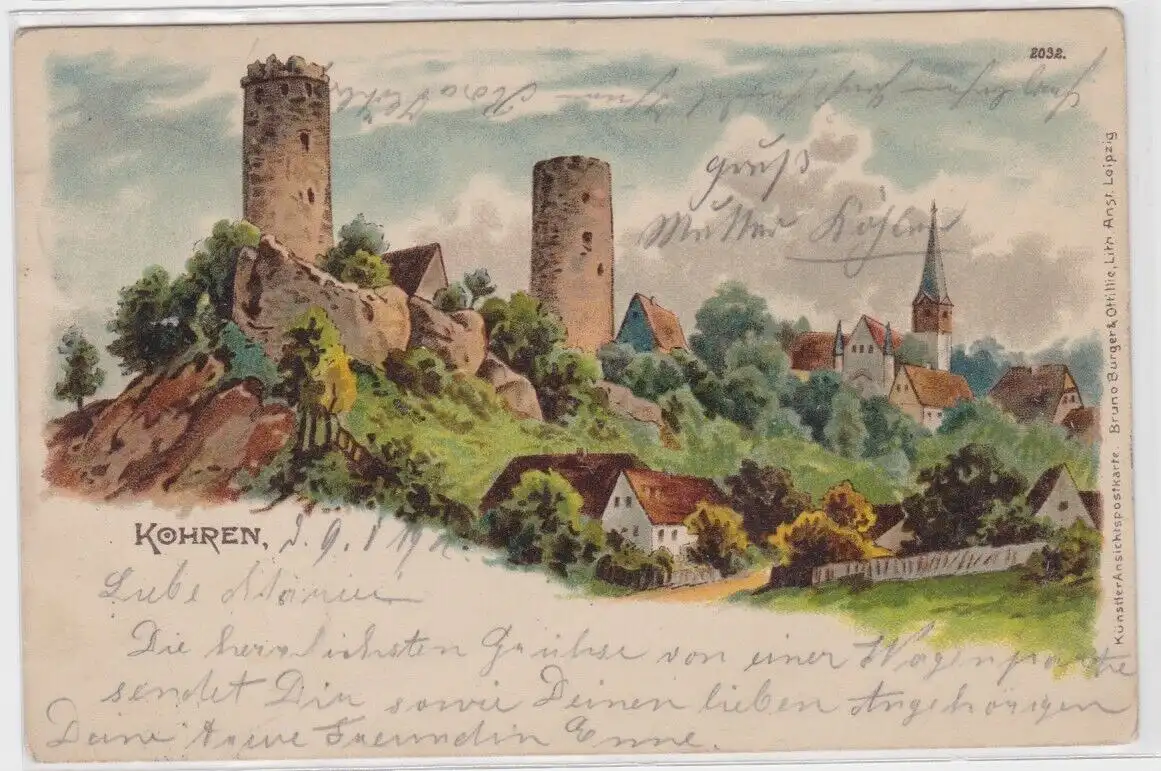 2032.
Gruß
Mutter Köhler
KOHREN, d. 9.
Liebe
Die herrlichsten Grühse von einer Wagenpartie
sendet Dir sowie Deinen lieben Angehörigen
Deine treue Freundin Enne.
Künstler Ansichtspostkarte. Bruno Bürger & Ottillie, Lith. Anst. Leipzig